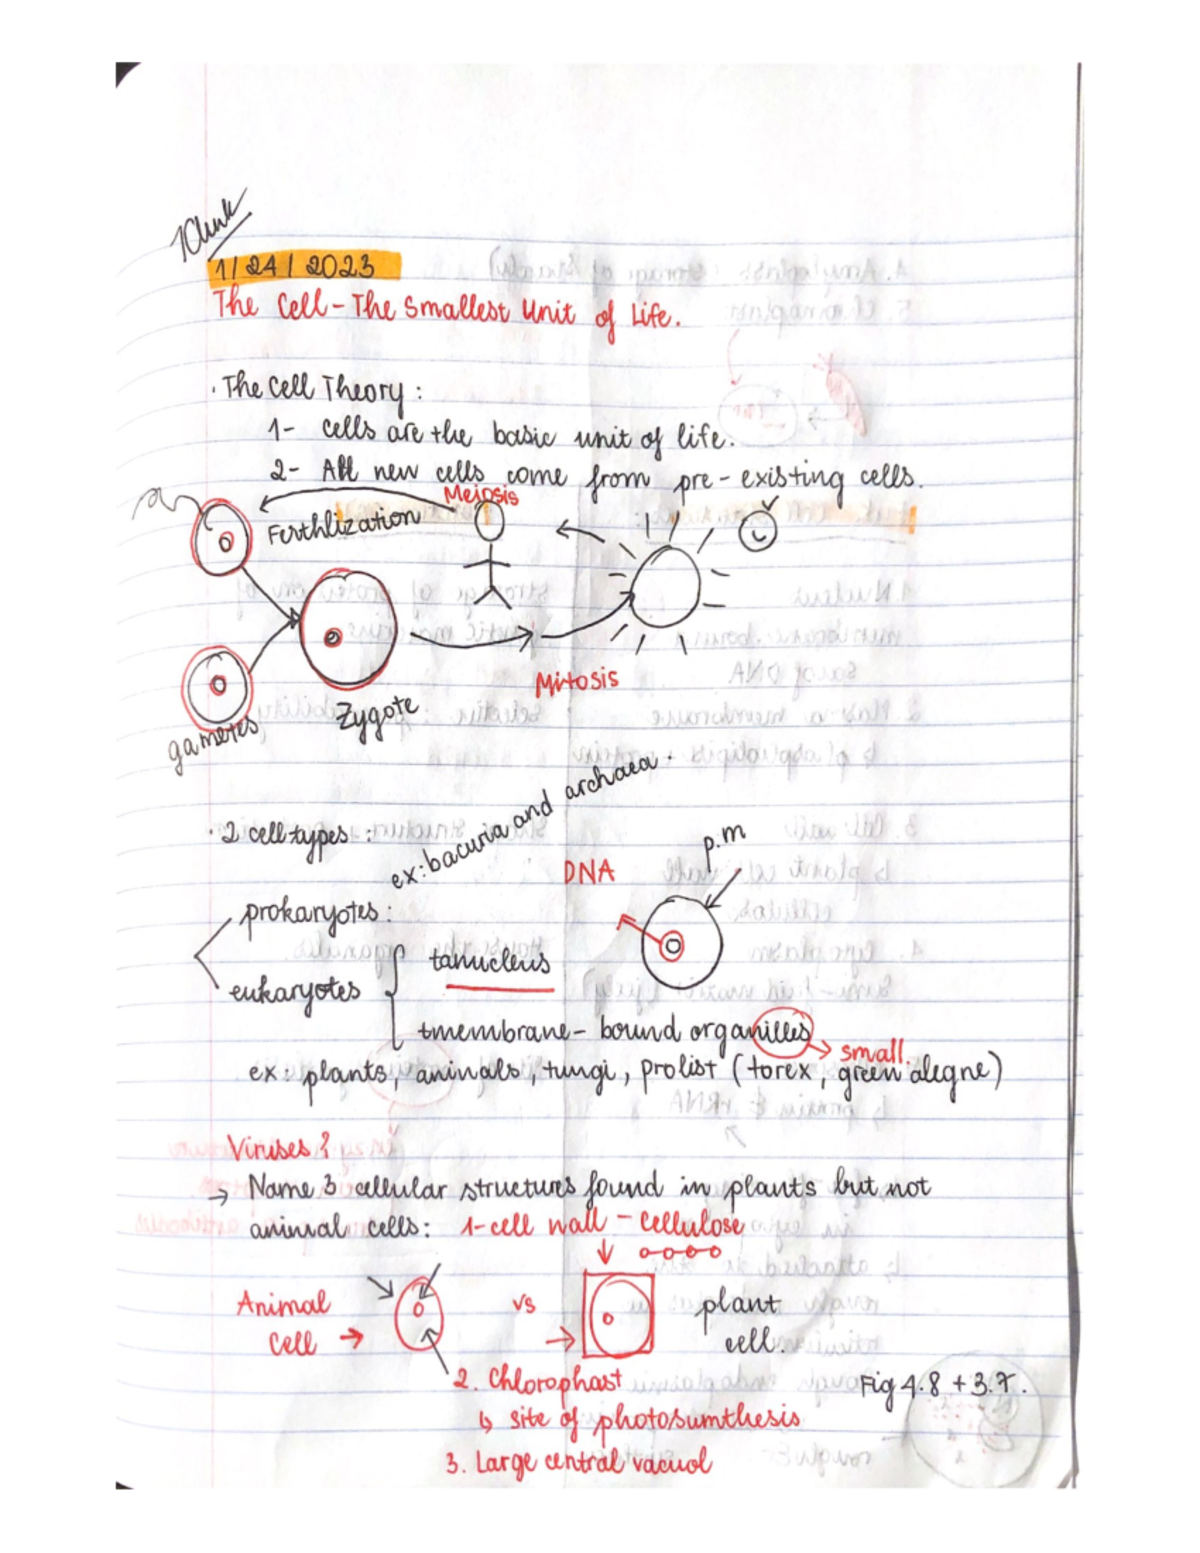 1/24/2023
The Cell - The Smallest Unit of Life.
· The Cell Theory :
1- cells are the basic unit of life.
2- All new cells come from pre-existing cells.
Meiosis
Ferthlization
Mitosis
Zygote
gametes
· 2 cell types :
ex: bacuria and archaea.
prokaryotes :
eukaryotes
tanucleus
DNA
p.m
tmembrane- bound organilles
small.
ex: plants, animals, tungi, prolist (torex, green alegne)
Viruses ?
→ Name 3 cellular structures found in plants but not
animal cells: 1-cell wall - cellulose
Animal
Cell →
vs
plant
cell.
2. Chlorophast
Fig 4.8 + 3.7.
↳ site of photosumthesis
3. Large central vacuol